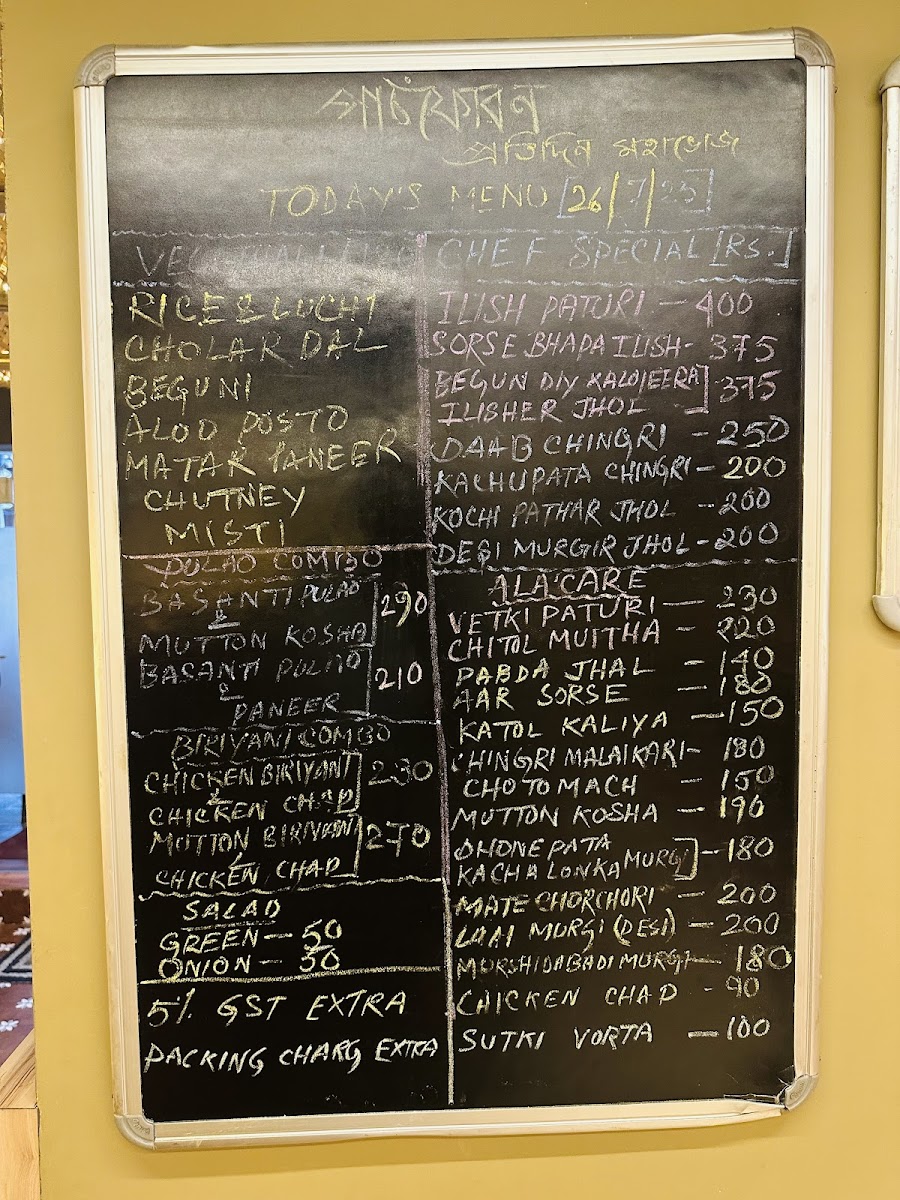 পাঁচফোরন
প্রতিদিন মহাভোজ
TODAY'S MENU [26/7/25]
RICE & LUCHI
CHOLAR DAL
BEGUNI
ALOO POSTO
MATAR PANEER
CHUTNEY
MISTI
PULAO COMBO
BASANTI PULAO
&
MUTTON KOSHA 290
BASANTI PULAO
&
PANEER 210
BIRIYANI COMBO
CHICKEN BIRIYANI
&
CHICKEN CHAP 230
MUTTON BIRIYANI
&
CHICKEN CHAP 270
SALAD
GREEN - 50
ONION - 30
5% GST EXTRA
PACKING CHARG EXTRA
CHEF SPECIAL [RS.]
ILISH PATURI - 400
SORSE BHAPA ILISH - 375
BEGUN DIY KALOJEERA
ILISHER JHOL - 375
DAAB CHINGRI - 250
KACHUPATA CHINGRI - 200
KOCHI PATHAR JHOL - 200
DESI MURGIR JHOL - 200
ALA'CARE
VETKI PATURI - 230
CHITOL MUITHA - 220
PABDA JHAL - 140
AAR SORSE - 180
KATOL KALIYA - 150
CHINGRI MALAIKARI - 180
CHOTO MACH - 150
MUTTON KOSHA - 190
DHONE PATA
KACHA LONKA MURGI - 180
MATE CHORCHORI - 200
LAAL MURGI (DESI) - 200
MURSHIDABADI MURGI - 180
CHICKEN CHAP - 90
SUTKI VORTA - 100